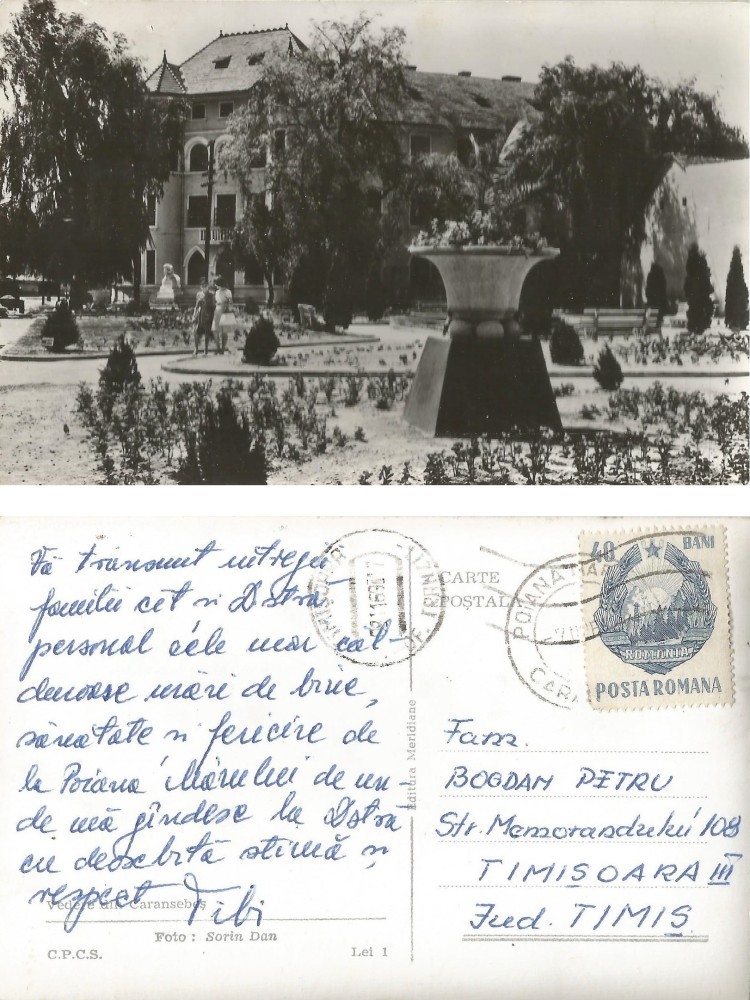 Vă transmit întregii
familii cît și Dstră
personal cele mai căl-
duroase urări de bine,
sănătate și fericire de
la Poiana Mărului de un-
de mă gîndesc la Dstră
cu deosebită stimă și
respect Tibi
Vedere din Caransebeș
Foto : Sorin Dan
C.P.C.S.
Lei 1
Editura Meridiane
TIMIȘOARA
CARTE
POȘTALĂ
POIANA MAR
CARA
40 BANI
ROMÂNIA
POSTA ROMANA
Fam.
BOGDAN PETRU
Str. Memorandului 108
TIMIȘOARA III
Jud. TIMIȘ